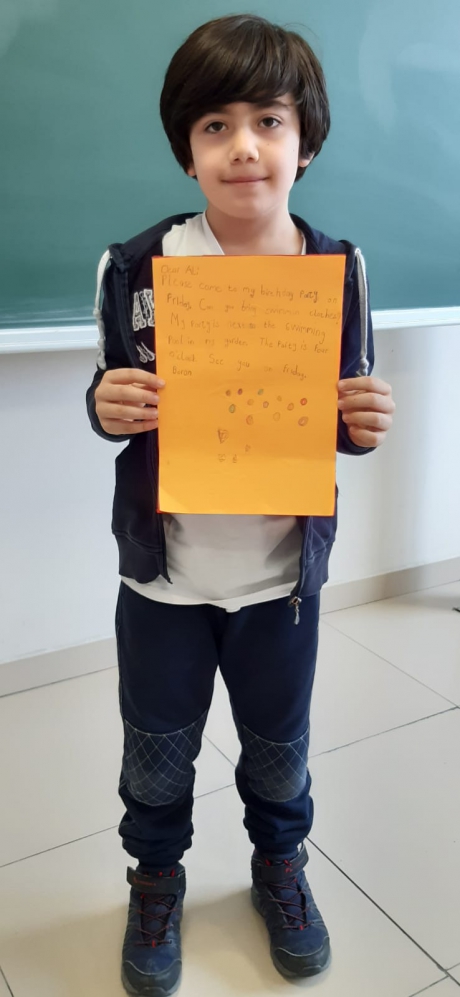 Dear Ali
Please come to my birthday Party on
Friday. Can you bring swimming clothes?
My party is beside the swimming
Pool in my garden. The Party is four
o'clock See you on Friday